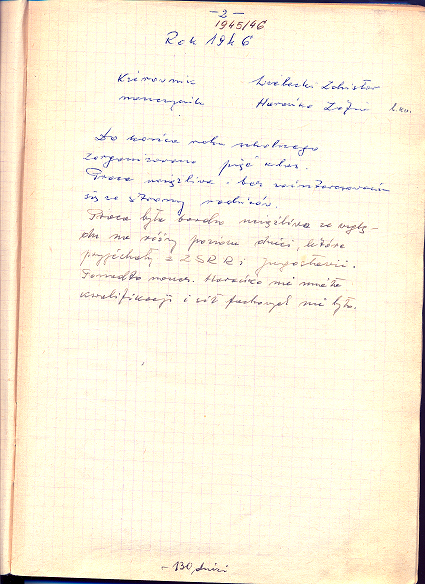 - 2 -
1945/46
Rok 1946
Kierownik
nauczyciel Haraśko Zofia
Do końca roku szkolnego
zorganizowano pięć klas.
Praca uciążliwa, bez zainteresowania
się ze strony rodziców.
Praca była bardzo uciążliwa ze wzglę-
du na różny poziom dzieci, które
przyjechały z ZSRR i Jugosławii.
Ponadto naucz. Haraśko nie miała
kwalifikacji i sił fachowych nie było.
- 130 dzieci